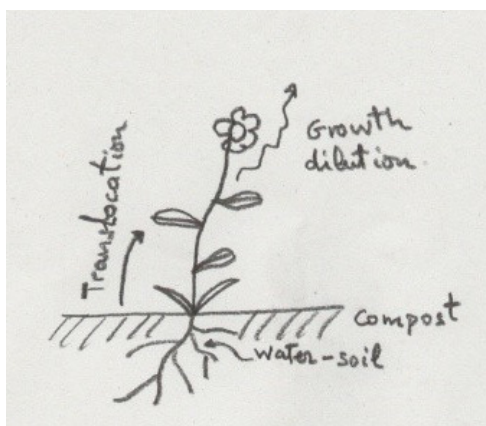 Translocation
Growth
dilution
Compost
water-soil